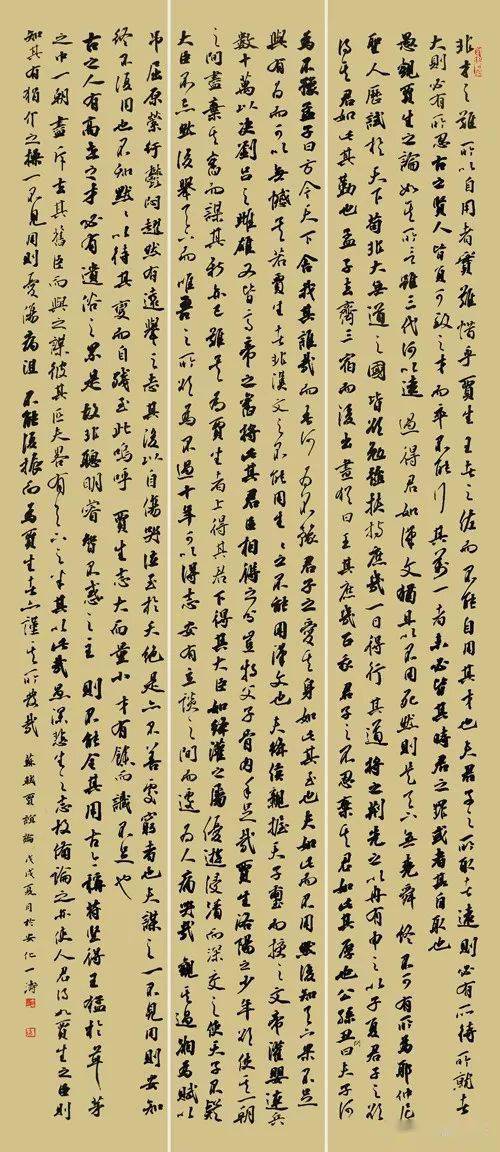 非才之難所以自用者實難惜乎賈生王者之佐而不能自用其才也夫君子之所取者遠則必有所待所就者
大則必有所忍古之賢人皆負可致之才而卒不能行其萬一者未必皆其時君之罪或者其自取也
愚觀賈生之論如其所言雖三代何以遠過得君如漢文猶且以不用死然則是天下無堯舜終不可有所為耶仲尼
聖人歷試於天下苟非大無道之國皆欲勉強扶持庶幾一日得行其道將之荊先之以冉有申之以子夏君子之欲
得其君如此其勤也孟子去齊三宿而後出晝猶曰王其庶幾召我君子之不忍棄其君如此其厚也公孫丑曰夫子何
為不豫孟子曰方今天下舍我其誰哉而吾何為不豫君子之愛其身如此其至也夫如此而不用然後知天下果不足
與有為而可以無憾矣若賈生者非漢文之不能用生生之不能用漢文也夫絳侯親握天子璽而授之文帝灌嬰連兵
數十萬以決劉呂之雌雄又皆高帝之舊將此其君臣相得之分豈特父子骨肉手足哉賈生洛陽之少年欲使其一朝
之間盡棄其舊而謀其新亦已難矣為賈生者上得其君下得其大臣如絳灌之屬優游浸漬而深交之使天子不疑
大臣不忌然後舉天下而唯吾之所欲為不過十年可以得志安有立談之間而遽為人痛哭哉觀其過湘為賦以
弔屈原縈紆鬱悶趯然有遠舉之志其後以自傷哭泣至於夭絕是亦不善處窮者也夫謀之一不見用則安知
終不復用也不知默默以待其變而自殘至此嗚呼賈生志大而量小才有餘而識不足也
古之人有高世之才必有遺俗之累是故非聰明睿智不惑之主則不能全其用古今稱苻堅得王猛於草茅
之中一朝盡斥去其舊臣而與之謀彼其匹夫略有天下之半其以此哉愚深悲生之志故備論之亦使人君得如賈生之臣則
知其有狷介之操一不見用則憂傷病沮不能復振而為賈生者亦謹其所發哉 蘇軾賈誼論 戊戌夏月於安化一濤